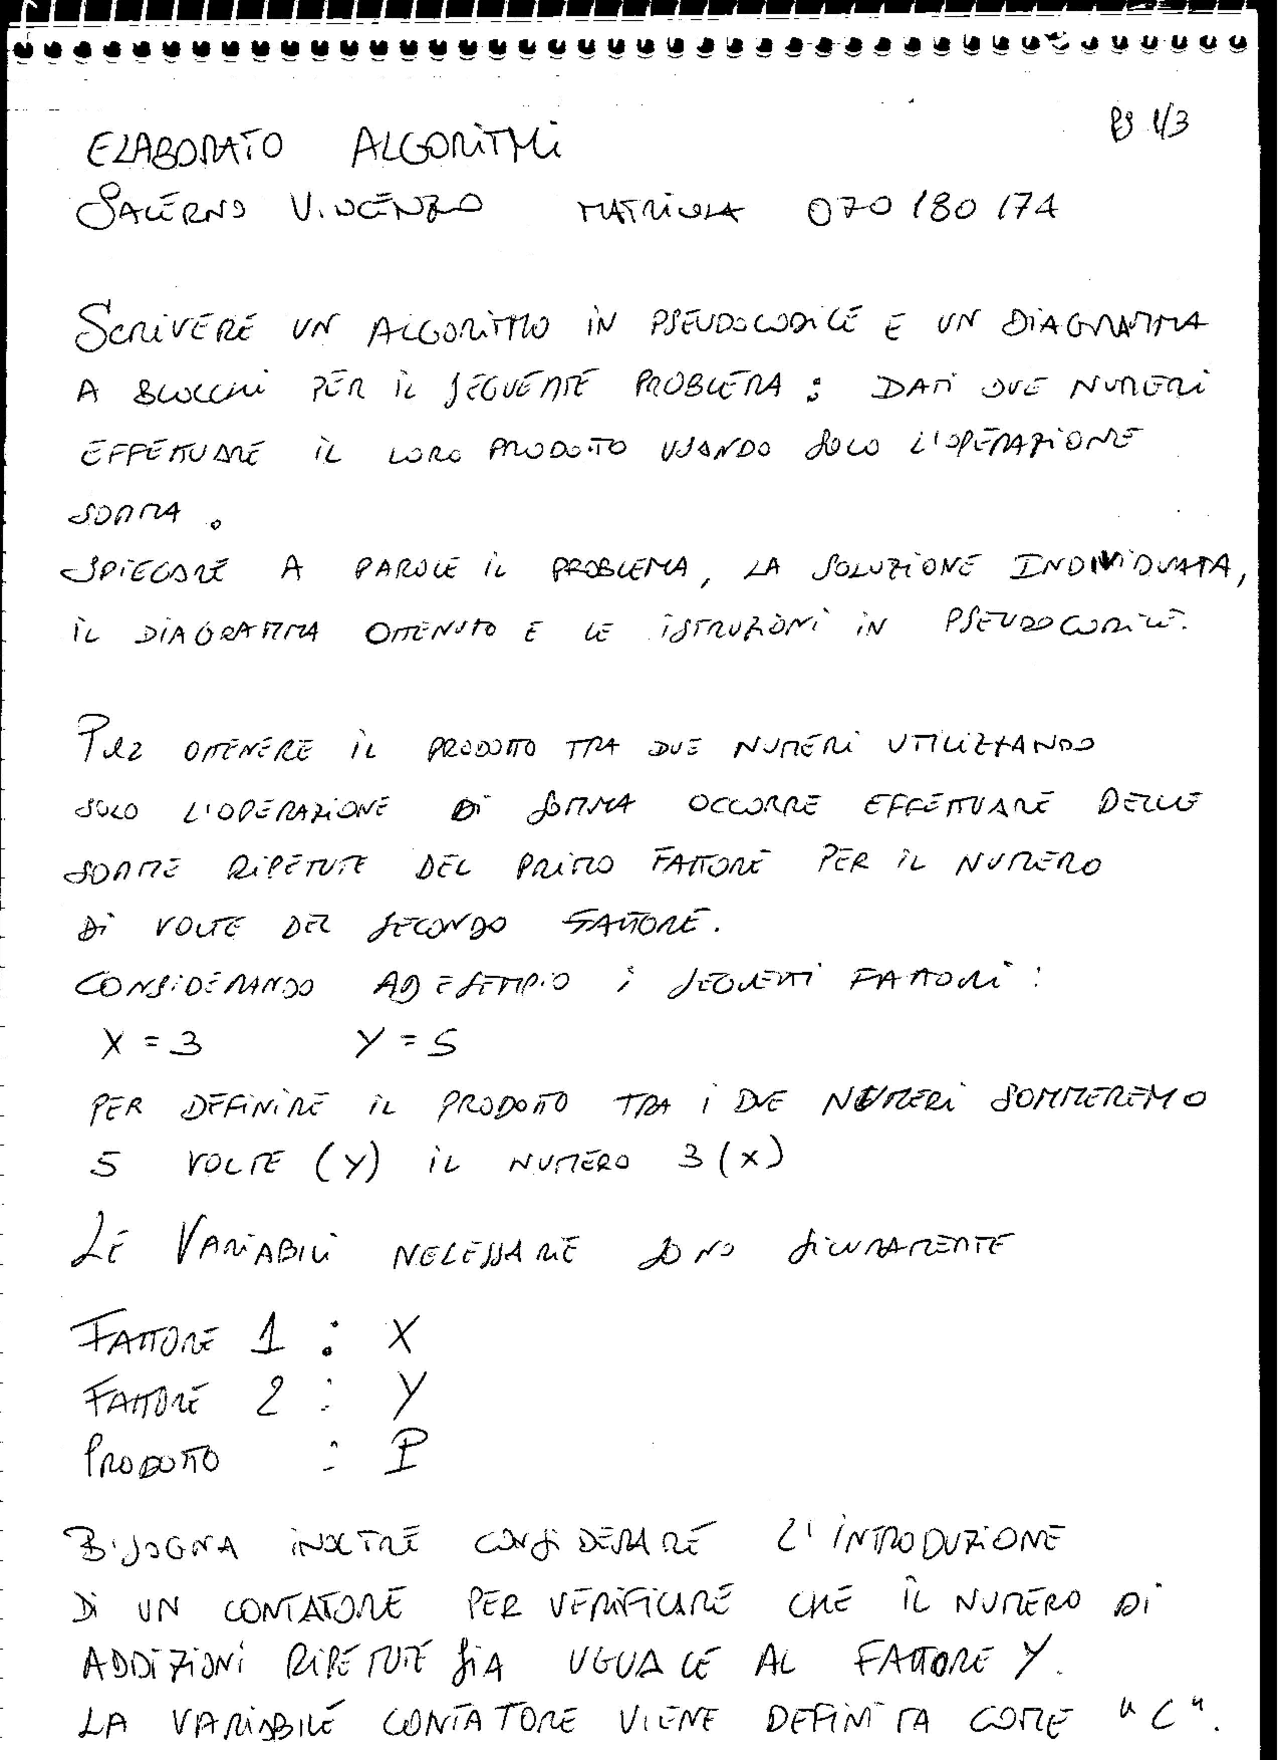 PG 1/3
ELABORATO ALGORITMI
SALERNO VINCENZO MATRICOLA 070180174
SCRIVERE UN ALGORITMO IN PSEUDOCODICE E UN DIAGRAMMA
A BLOCCHI PER IL SEGUENTE PROBLEMA: DATI DUE NUMERI
EFFETTUARE IL LORO PRODOTTO USANDO SOLO L'OPERAZIONE
SOMMA.
SPIEGARE A PAROLE IL PROBLEMA, LA SOLUZIONE INDIVIDUATA,
IL DIAGRAMMA OTTENUTO E LE ISTRUZIONI IN PSEUDOCODICE.
PER OTTENERE IL PRODOTTO TRA DUE NUMERI UTILIZZANDO
SOLO L'OPERAZIONE DI SOMMA OCCORRE EFFETTUARE DELLE
SOMME RIPETUTE DEL PRIMO FATTORE PER IL NUMERO
DI VOLTE DEL SECONDO FATTORE.
CONSIDERANDO AD ESEMPIO I SEGUENTI FATTORI:
X = 3 Y = 5
PER DEFINIRE IL PRODOTTO TRA I DUE NUMERI SOMMEREMO
5 VOLTE (Y) IL NUMERO 3 (X)
LE VARIABILI NECESSARIE SONO SICURAMENTE
FATTORE 1 : X
FATTORE 2 : Y
PRODOTTO : P
BISOGNA INOLTRE CONSIDERARE L'INTRODUZIONE
DI UN CONTATORE PER VERIFICARE CHE IL NUMERO DI
ADDIZIONI RIPETUTE SIA UGUALE AL FATTORE Y.
LA VARIABILE CONTATORE VIENE DEFINITA COME "C".